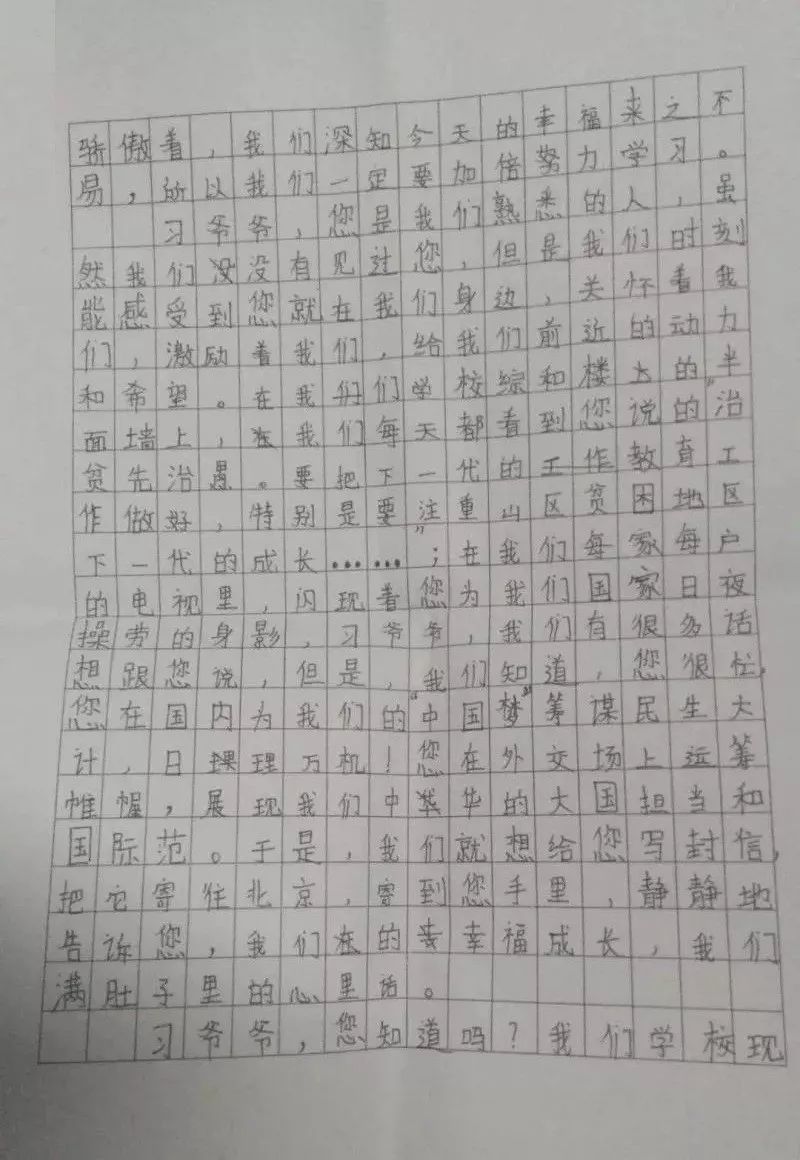 骄傲着，我们深知今天的幸福来之不
易，所以我们一定要加倍努力学习。
习爷爷，您是我们熟悉的人，虽
然我们没没有见过您，但是我们时刻
能感受到您就在我们身边，关怀着我
们，激励着我们，给我们前近的动力
和希望。在我们们学校综和楼上的半
面墙上，在我们每天都看到您说的“治
贫先治愚。要把下一代的工作教育工
作做好，特别是要“注重山区贫困地区
下一代的成长……；在我们每家每户
的电视里，闪现着您为我们国家日夜
操劳的身影，习爷爷，我们有很多话
想跟您说，但是，我们知道，您很忙，
您在国内为我们的“中国梦”筹谋民生大
计，日理万机！您在外交场上运筹
帷幄，展现我们中华的大国担当和
国际范。于是，我们就想给您写封信，
把它寄往北京，寄到您手里，静静地
告诉您，我们在的幸福成长，我们
满肚子里的心里话。
习爷爷，您知道吗？我们学校现